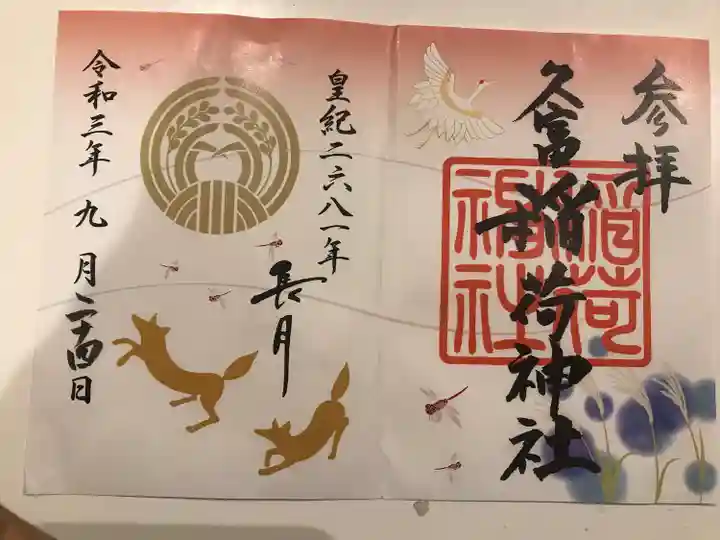 参拝
久富稲荷神社
稲荷
神社
皇紀二六八一年
長月
令和三年九月二十四日